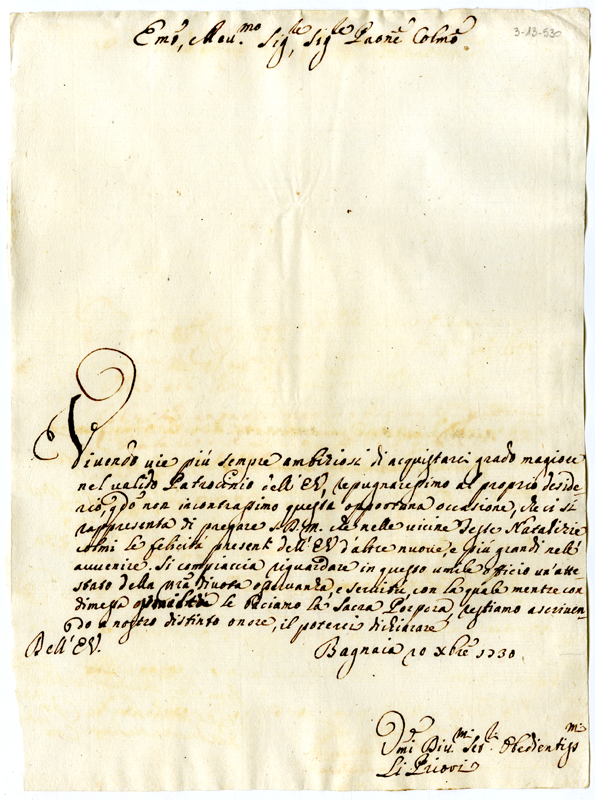 Em̃o, e Rev.mo Sig.re, Sig.re Pãone Colmo
3-13-530
Vivendo vie più sempre ambiziosi di acquistarci grado magiore
nel valido Patrocinio dell'EV, repugnaressimo al proprio deside-
rio, qdo non incontrassimo questa opportuna occasione, che ci si
rappresenta di pregare S.D.M. che nelle vicine Feste Natalizie
colmi le felicità presenti dell'EV d'altre nuove, e più grandi nell'
avvenire. Si compiaccia riguardare in questo umile officio un'atte-
stato della nr̃a divota osservanza, e servitù, con la quale mentre con
dimessa le baciamo la Sacra Porpora, restiamo ascriven-
do a nostro distinto onore, il poterci dichiarare
Dell'EV.
Bagnaia 20 Xbre 1730.
Vmi Div.mi Ser.ri Obedientiss.mi
Li Priori